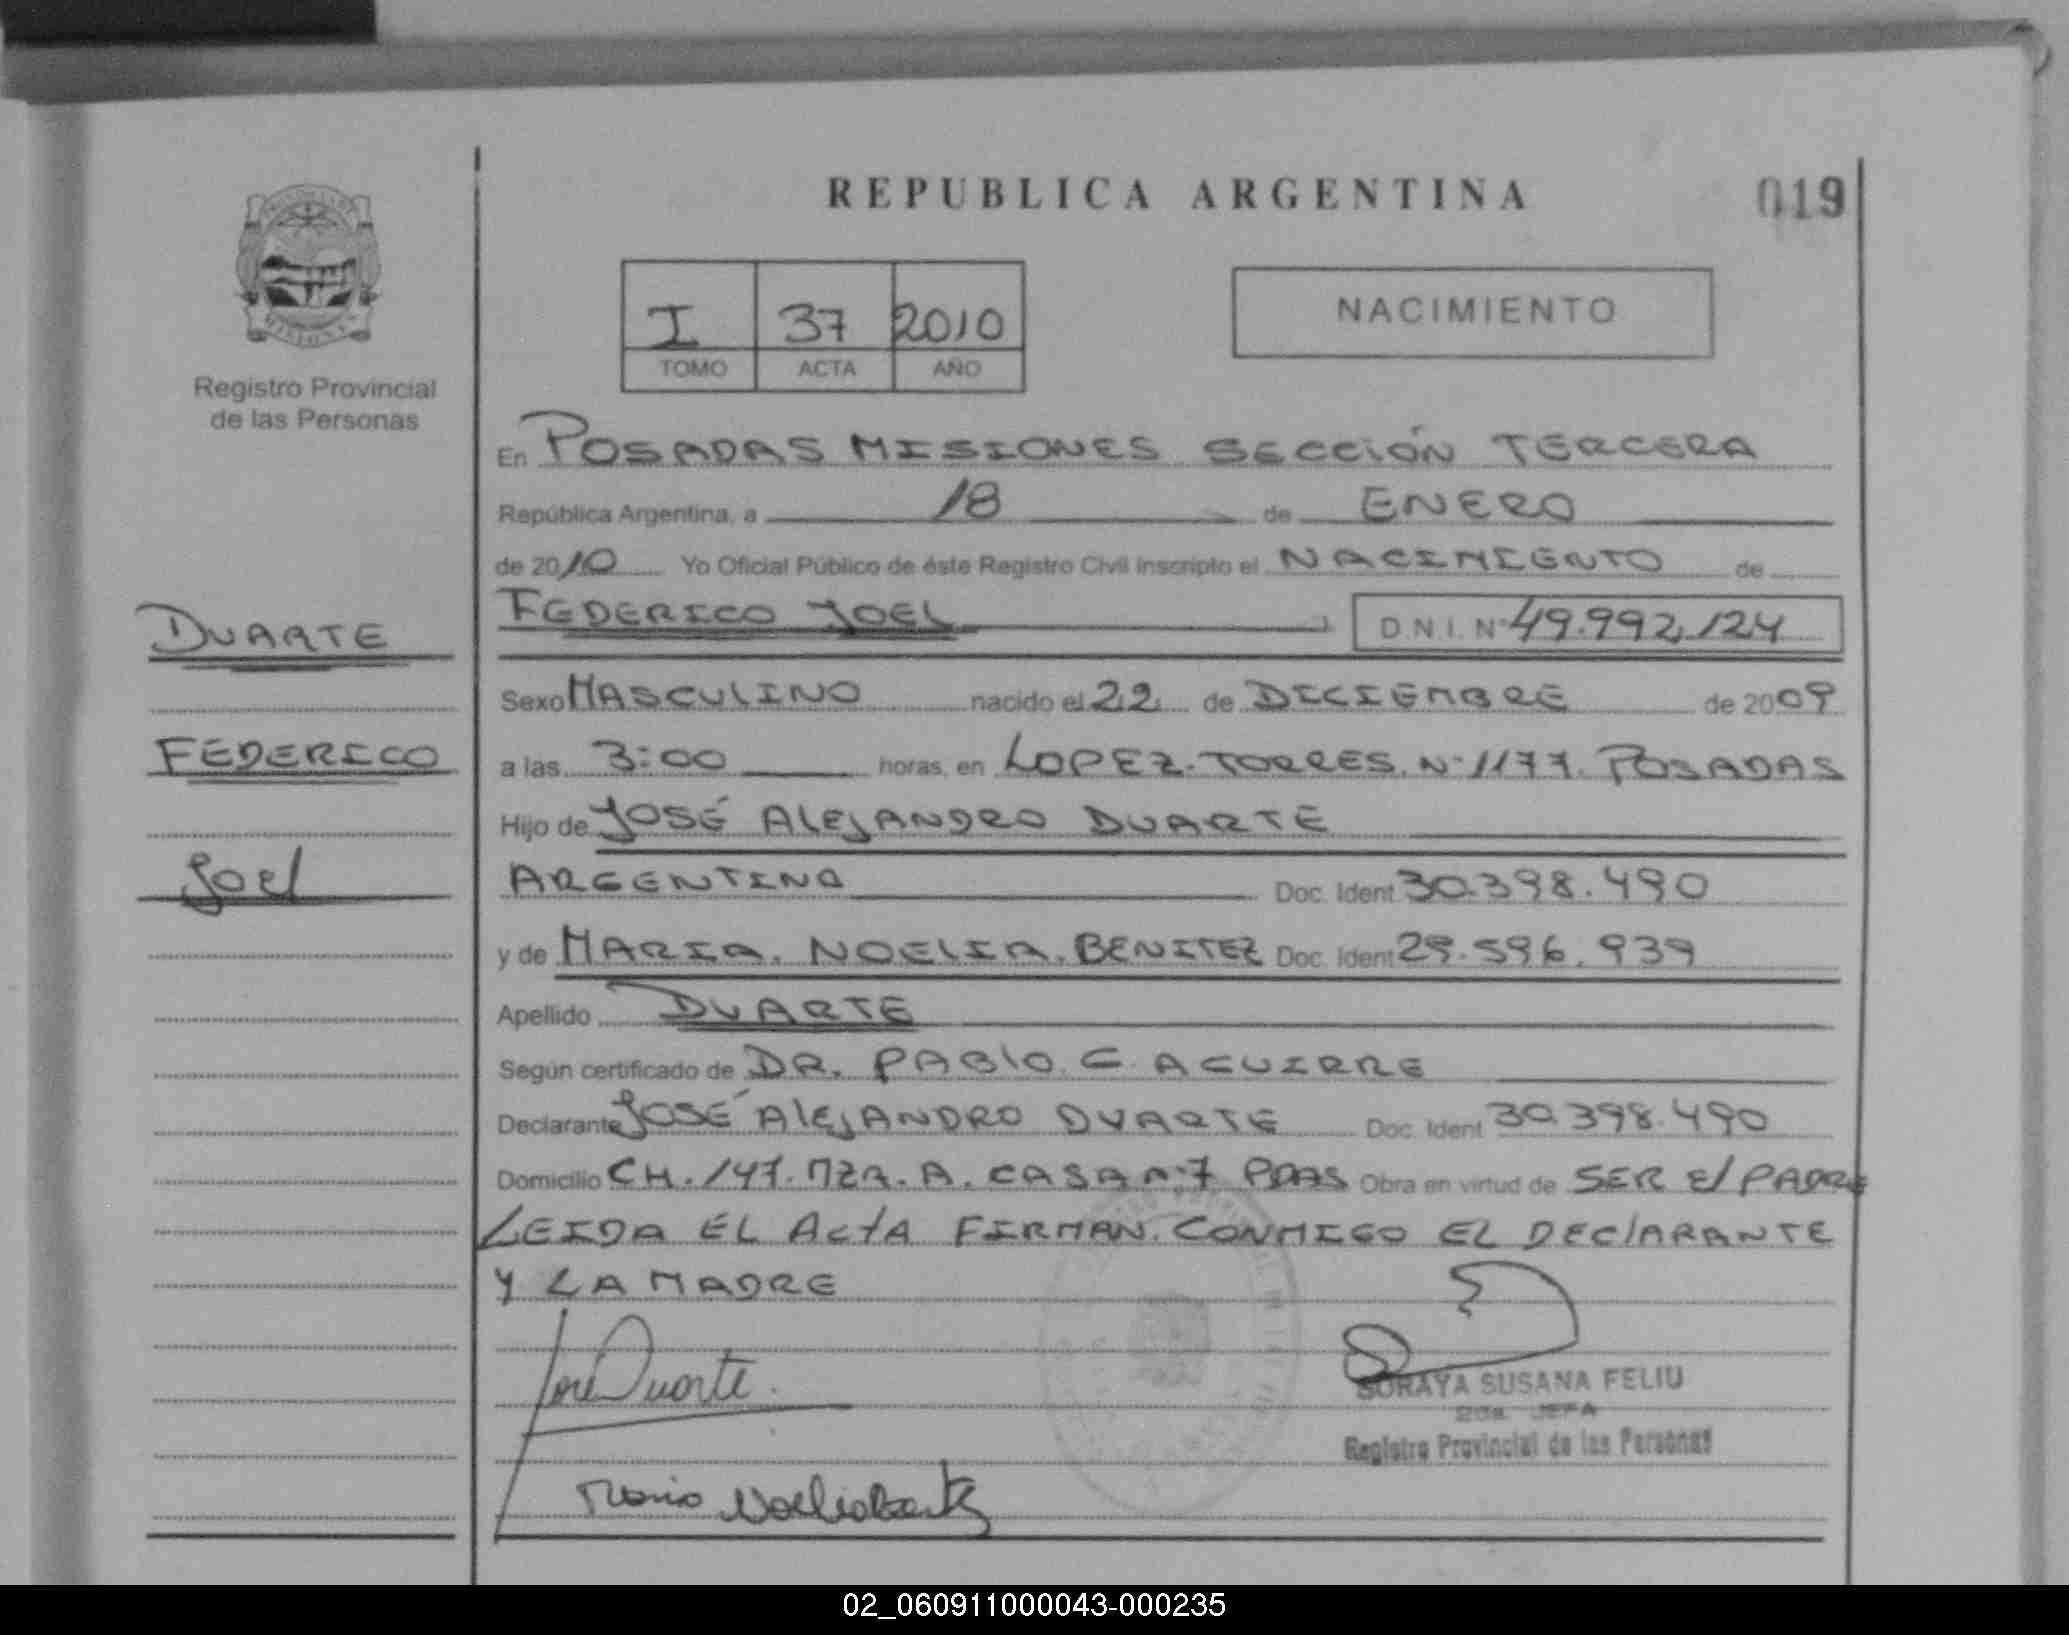 REPUBLICA ARGENTINA
019
I 37 2010
TOMO ACTA AÑO
NACIMIENTO
Registro Provincial
de las Personas
En POSADAS MISIONES SECCIÓN TERCERA
República Argentina, a 18 de ENERO
de 2010 Yo Oficial Público de éste Registro Civil inscripto el NACIMIENTO de
FEDERICO JOEL D.N.I. Nº 49.992.124
DUARTE
FEDERICO
Joel
Sexo MASCULINO nacido el 22 de DICIEMBRE de 2009
a las 3:00 horas, en LOPEZ. TORRES. Nº 1177. POSADAS
Hijo de JOSÉ ALEJANDRO DUARTE
ARGENTINO Doc. Ident 30.398.490
y de MARIA. NOELIA. BENITEZ Doc. Ident 29.596.939
Apellido DUARTE
Según certificado de DR. PABLO. C. AGUIRRE
Declarante JOSÉ ALEJANDRO DUARTE Doc. Ident 30.398.490
Domicilio CH. 147. MZA. A. CASA Nº 7 PDAS Obra en virtud de SER El PADRE
LEIDA EL ACTA FIRMAN. CONMIGO EL DEClARANTE
Y LA MADRE
José Duarte.
SORAYA SUSANA FELIU
2da. JEFA
Registro Provincial de las Personas
Maria Noelia Benitez
02_060911000043-000235